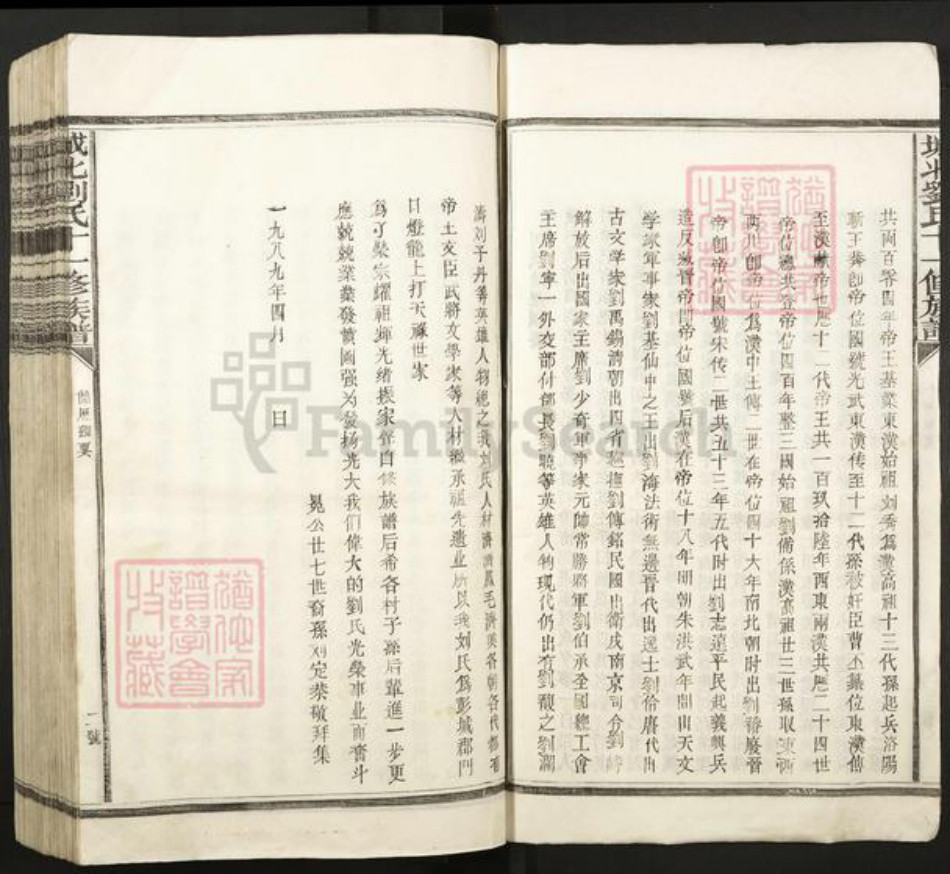 城北劉氏十一修族譜
共南百零四年帝王基業東漢始祖刘秀爲漢高祖十三代孫起兵洛陽
新王莽卽帝位國號光武東漢传至十二代孫被奸臣曹丕纂位東漢傳
至漢獻帝也歷十二代帝王共一百玖拾陸年西東兩漢共歷二十四世
帝位總共登帝位四百年整三國始祖劉備係漢高祖廿三世孫取東西
兩川卽帝位爲漢中王傳二世在帝位四十六年南北朝时出劉裕廢晉
帝卽帝位國號宋传二世共五十三年五代时出劉志遠平民起義興兵
造反滅晉日開帝位國號后漢在帝位十八年明朝朱洪武年間出天文
学家軍事家劉基仙中之王出劉海法術無邊晉代出逸士劉伶唐代出
古文学家劉禹錫清朝出四省總督劉傳銘民國出衛戍南京司令劉峙
解放后出國家主席劉少奇軍事家元帥常勝將軍劉伯承全國總工會
主席劉寧一外交部付部長劉曉等英雄人物現代仍出有劉馥之劉瀾
濤刘子丹等英雄人物總之我刘氏人材濟濟鳳毛濟美各朝各代都有
帝王文臣武將文學家等人材繼承祖先遺业所以我刘氏爲彭城郡門
口燈籠上打天祿世家
爲了榮宗耀祖輝光緒振家聲自修族譜后希各村子孫后輩進一步更
應兢兢業業發憤圖强为发扬光大我们偉大的劉氏光榮事业而奮斗
晃公廿七世裔孫刘定荣敬拜集
一九八九年四月　日
城北劉氏十一修族譜
簡歷綱要
二號
猶他家譜學會收藏
猶他家譜學會收藏
FamilySearch